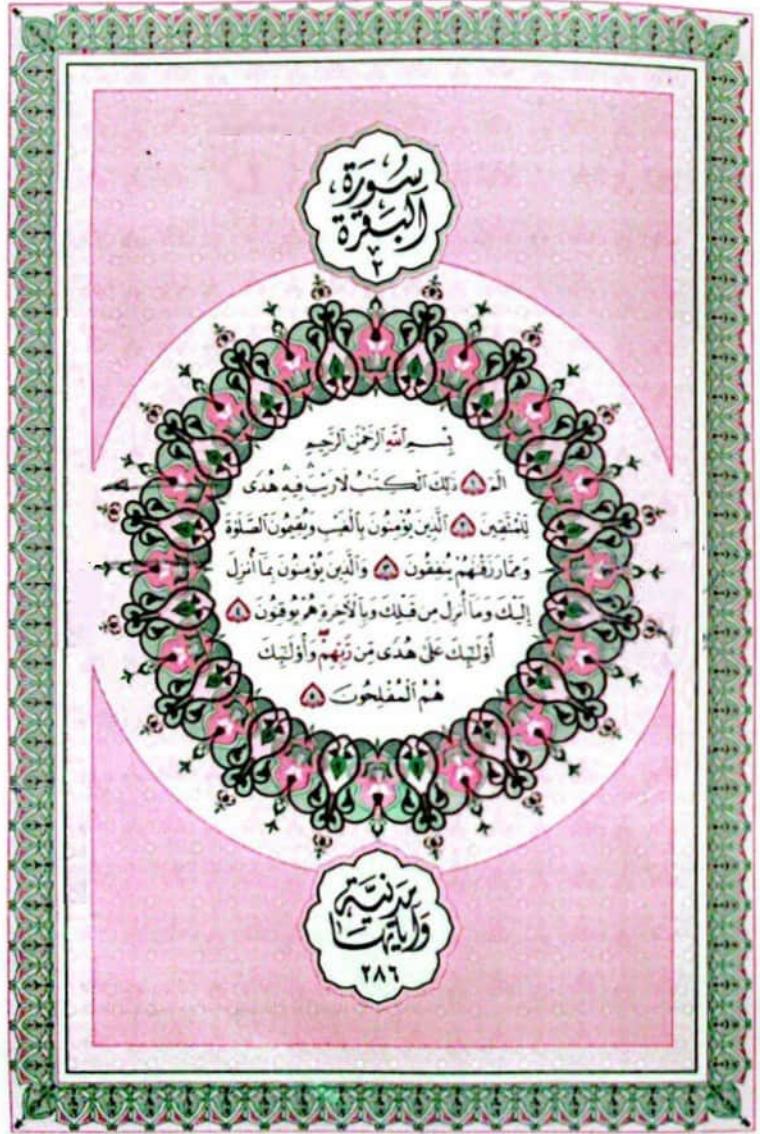 سُورَةُ
البَقَرَةِ
٢
بِسْمِ اللَّهِ الرَّحْمَٰنِ الرَّحِيمِ
الٓمٓ ١ ذَٰلِكَ الْكِتَٰبُ لَا رَيْبَ ۛ فِيهِ ۛ هُدًى
لِّلْمُتَّقِينَ ٢ الَّذِينَ يُؤْمِنُونَ بِالْغَيْبِ وَيُقِيمُونَ الصَّلَوٰةَ
وَمِمَّا رَزَقْنَٰهُمْ يُنفِقُونَ ٣ وَالَّذِينَ يُؤْمِنُونَ بِمَا أُنزِلَ
إِلَيْكَ وَمَا أُنزِلَ مِن قَبْلِكَ وَبِالْآخِرَةِ هُمْ يُوقِنُونَ ٤
أُولَٰئِكَ عَلَىٰ هُدًى مِّن رَّبِّهِمْ وَأُولَٰئِكَ
هُمُ الْمُفْلِحُونَ ٥
مَدَنِيَّة
وَآيَاتُهَا
٢٨٦